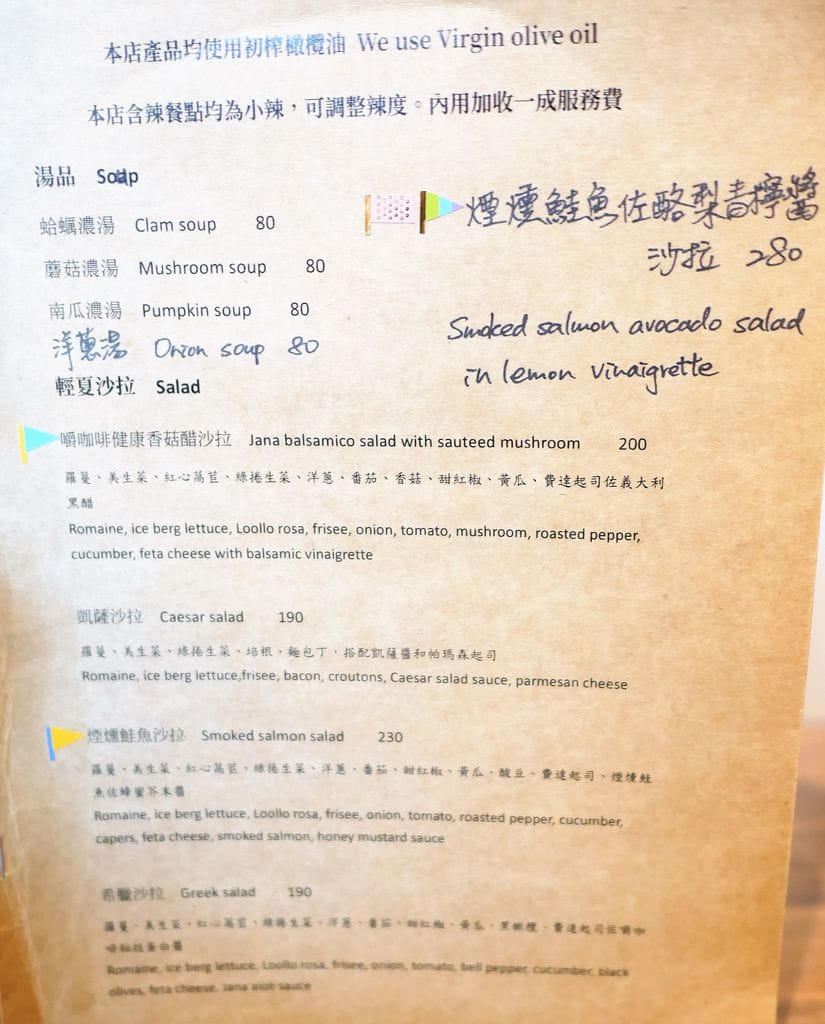 本店產品均使用初榨橄欖油 We use Virgin olive oil
本店含辣餐點均為小辣，可調整辣度。內用加收一成服務費
湯品 Soup
蛤蠣濃湯 Clam soup 80
蘑菇濃湯 Mushroom soup 80
南瓜濃湯 Pumpkin soup 80
洋蔥湯 Onion soup 80
煙燻鮭魚佐酪梨青檸醬
沙拉 280
Smoked salmon avocado salad
in lemon vinaigrette
輕夏沙拉 Salad
嚼咖啡健康香菇醋沙拉 Jana balsamico salad with sauteed mushroom 200
羅蔓、美生菜、紅心萵苣、綠捲生菜、洋蔥、番茄、香菇、甜紅椒、黃瓜、費達起司佐義大利
黑醋
Romaine, ice berg lettuce, Loollo rosa, frisee, onion, tomato, mushroom, roasted pepper,
cucumber, feta cheese with balsamic vinaigrette
凱薩沙拉 Caesar salad 190
羅蔓、美生菜、綠捲生菜、培根、麵包丁，搭配凱薩醬和帕瑪森起司
Romaine, ice berg lettuce,frisee, bacon, croutons, Caesar salad sauce, parmesan cheese
煙燻鮭魚沙拉 Smoked salmon salad 230
羅蔓、美生菜、紅心萵苣、綠捲生菜、洋蔥、番茄、甜紅椒、黃瓜、酸豆、費達起司、煙燻鮭
魚佐蜂蜜芥末醬
Romaine, ice berg lettuce, Loollo rosa, frisee, onion, tomato, roasted pepper, cucumber,
capers, feta cheese, smoked salmon, honey mustard sauce
希臘沙拉 Greek salad 190
羅蔓、美生菜、紅心萵苣、綠捲生菜、洋蔥、番茄、甜紅椒、黃瓜、黑橄欖、費達起司佐嚼咖
啡秘拉蛋白醬
Romaine, ice berg lettuce, Loollo rosa, frisee, onion, tomato, bell pepper, cucumber, black
olives, feta cheese, Jana aioli sauce